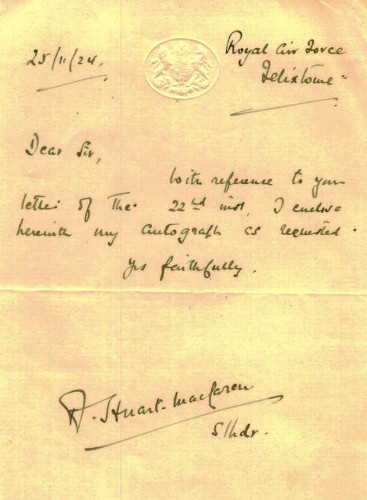 25/11/24.
Royal Air Force
Felixtowe
Dear Sir,
With reference to your
letter of the 22nd inst, I enclose
herewith my autograph as requested.
Yrs faithfully.
A. Stuart-MacLaren
S/Ldr.